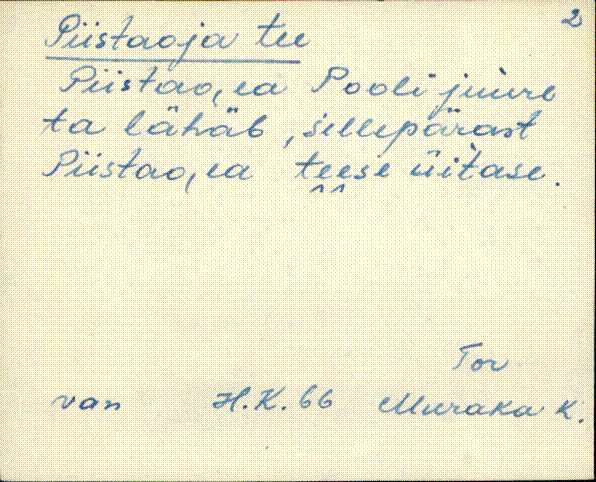 2
Piistaoja tee
Piistao,ea Pooli juure
ta lähäb, sellepärast
Piistao,ea teese üitase.
Tor
van H.K. 66 Muraka k.